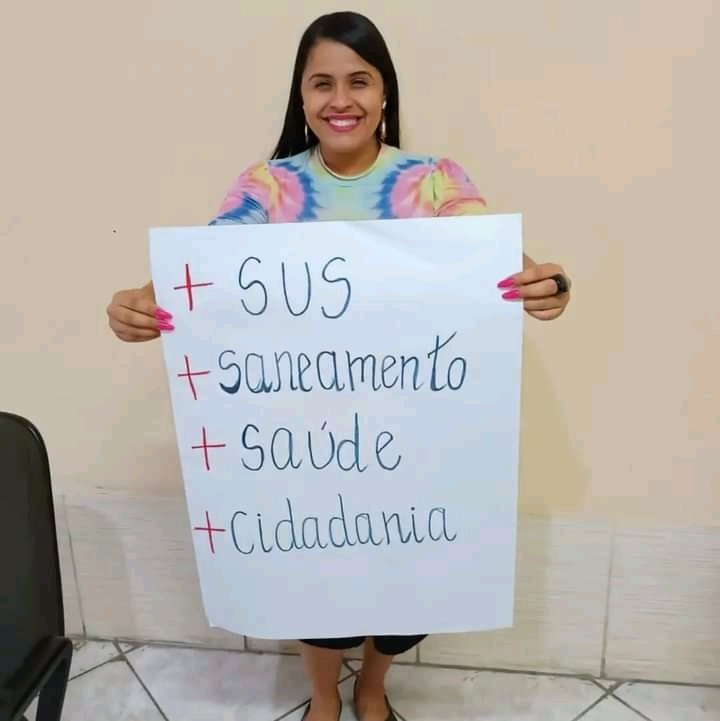 + SUS
+ Saneamento
+ Saúde
+ Cidadania